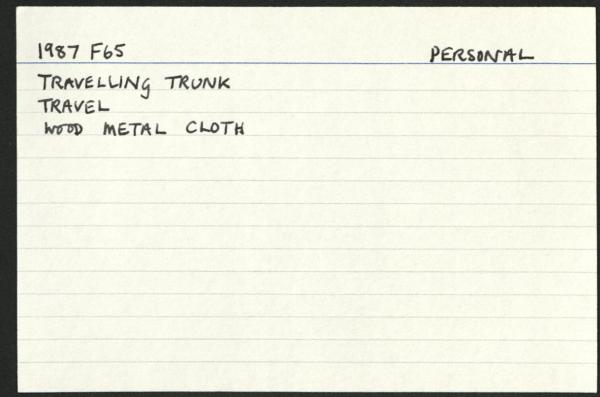 1987 F65 PERSONAL
TRAVELLING TRUNK
TRAVEL
WOOD METAL CLOTH